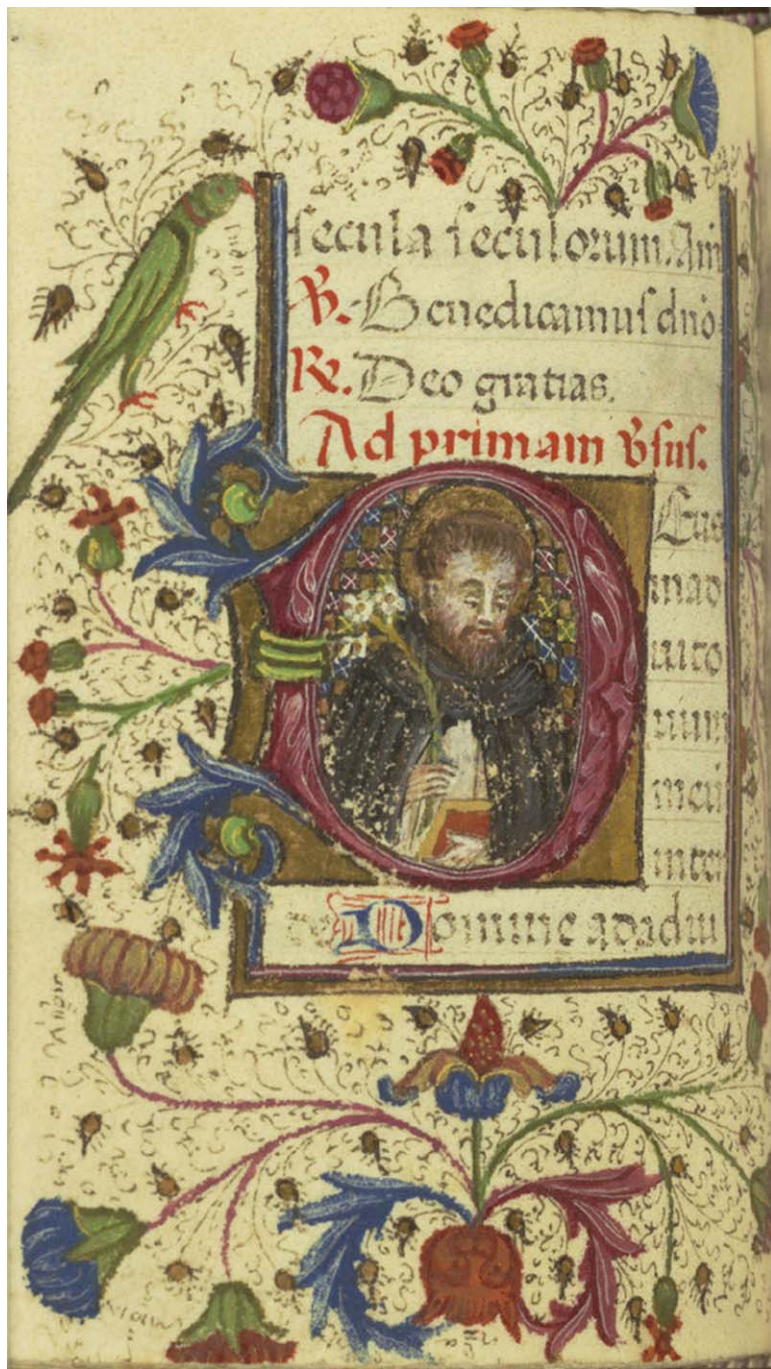 secula seculorum. Am
V. Benedicamus dno
R. Deo gratias.
Ad primam Vsus.
Deus
in ad
iuto
rium
meum
inten
de Domine ad adiu